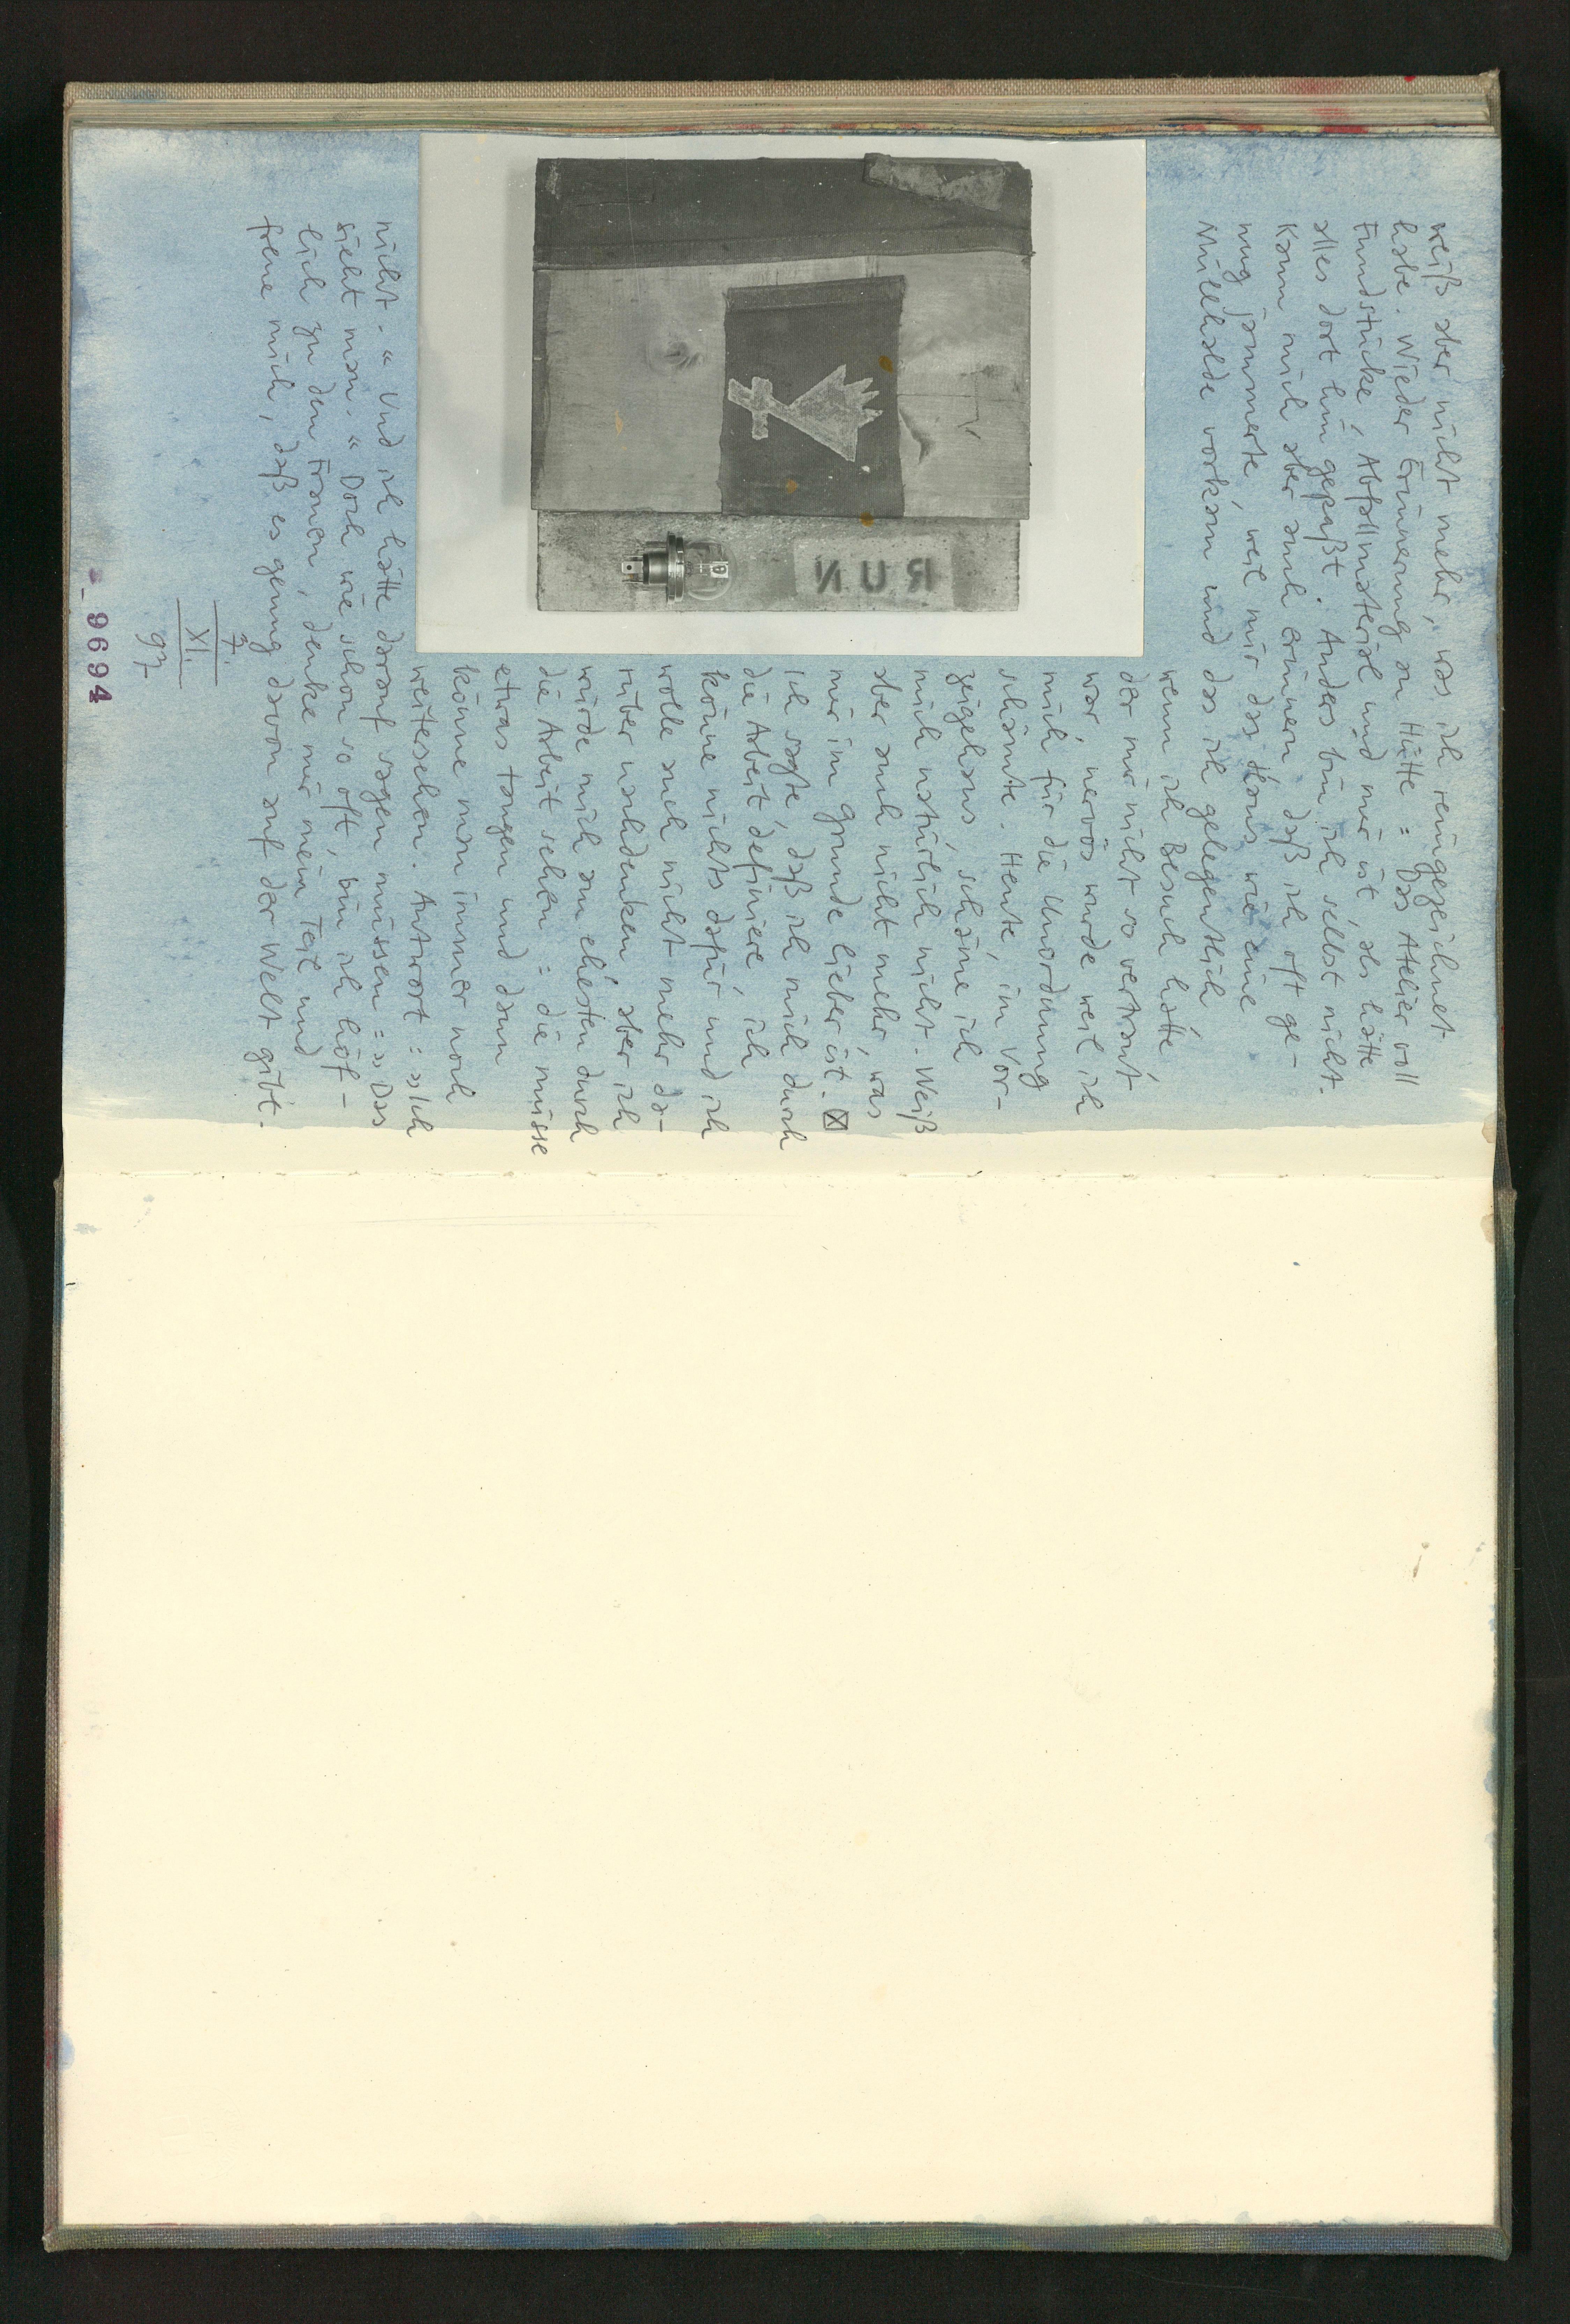 weiß aber nicht mehr, was ich reingezeichnet
habe. Wieder Erinnerung an Hütte = Das Atelier voll
Fundstücke, Abfallmaterial und mir ist, als hätte
alles dort hin gepaßt. Anders bin ich selbst nicht.
Kann mich aber auch erinnern, daß ich oft ge-
nug jammerte, weil mir das Haus wie eine
Müllhalde vorkam und das ich gelegentlich
wenn ich Besuch hatte,
der mir nicht so vertraut
war, nervös wurde weil ich
mich für die Unordnung
schämte. Heute, im Vor-
zeigehaus, schäme ich
mich natürlich nicht. Weiß
aber auch nicht mehr, was
mir im Grunde lieber ist.
Ich sagte, daß ich mich durch
die Arbeit definiere, ich
könne nichts dafür und ich
wolle auch nicht mehr da-
rüber nachdenken, aber ich
würde mich am ehesten durch
die Arbeit sehen = die müsse
etwas taugen und dann
könne man immer noch
weitersehen. Antwort = »Ich
nicht.« Und ich hätte darauf sagen müssen = »Das
sieht man.« Doch wie schon so oft, bin ich höf-
lich zu den Frauen, denke mir mein Teil und
freue mich, daß es genug davon auf der Welt gibt.
7.
XI.
97
9694
RUN